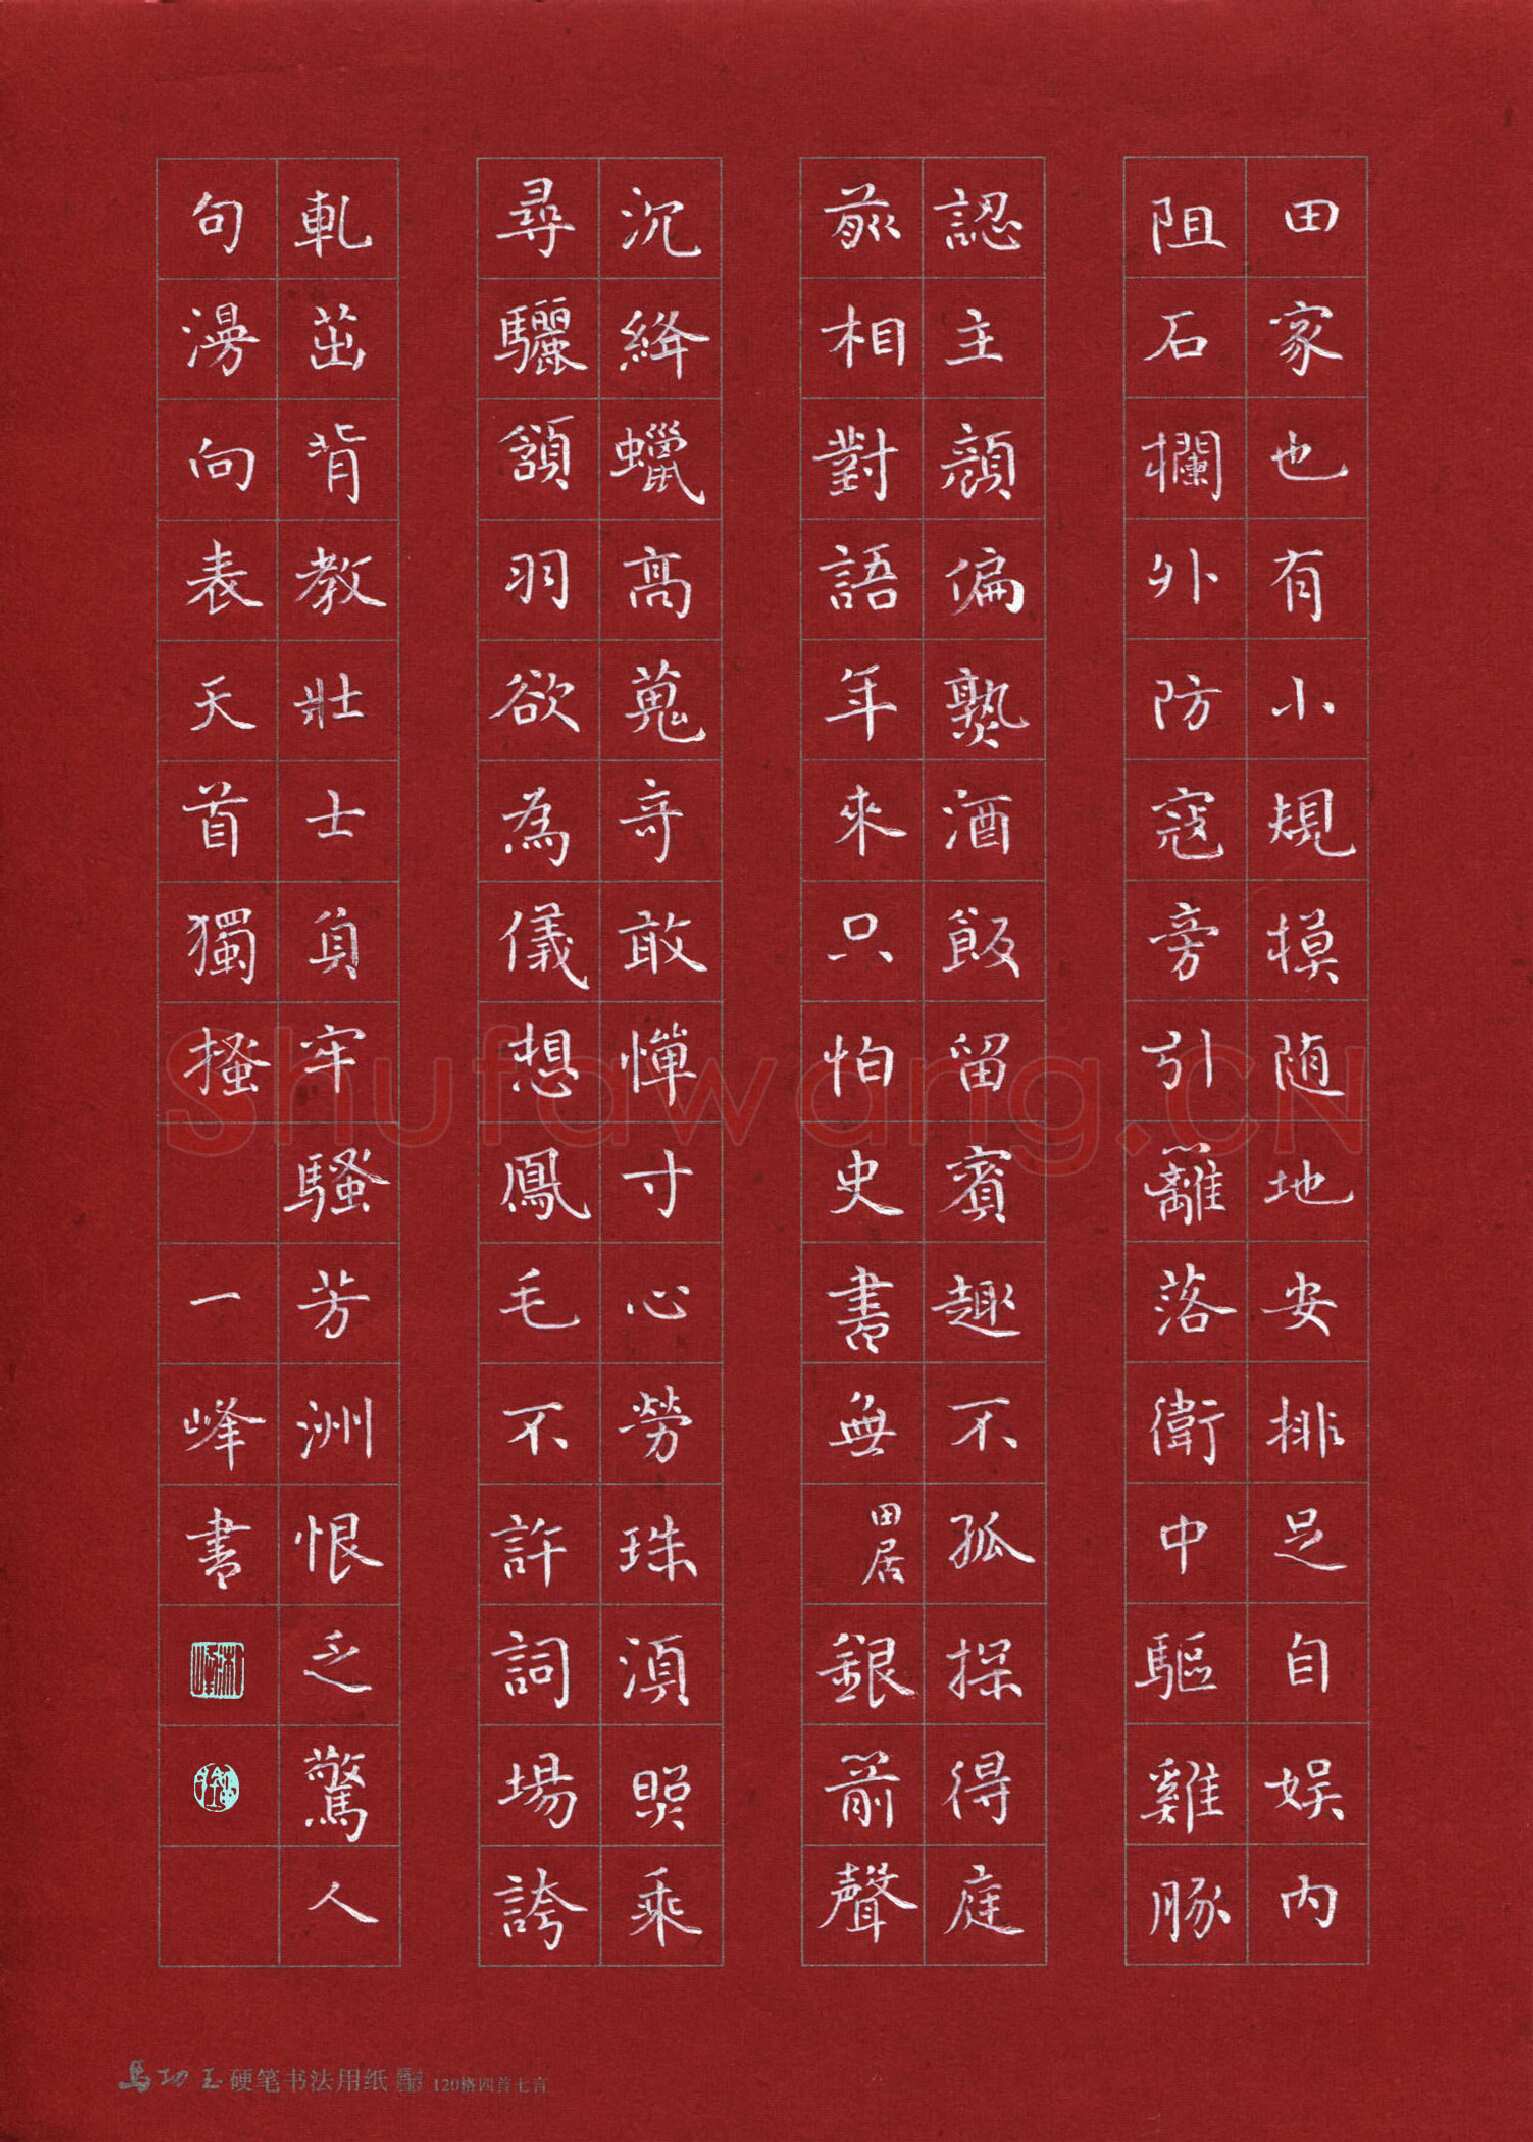 田家也有小規摸随地安排足自娱内
阻石欄外防寇旁引籬落衛中驅雞豚
認主顔偏熟酒飯留賓趣不孤探得庭
前相對語年來只怕史書無
田居
銀箭聲
沉絳蠟高蒐奇敢憚寸心勞珠湏照乘
尋驪頷羽欲為儀想鳳毛不許詞場誇
軋茁肯教壯士負牢騷芳洲恨乏驚人
句漫向表天首獨搔
一峰書
马功玉硬笔书法用纸
120格四首七言
Shufawang.CN